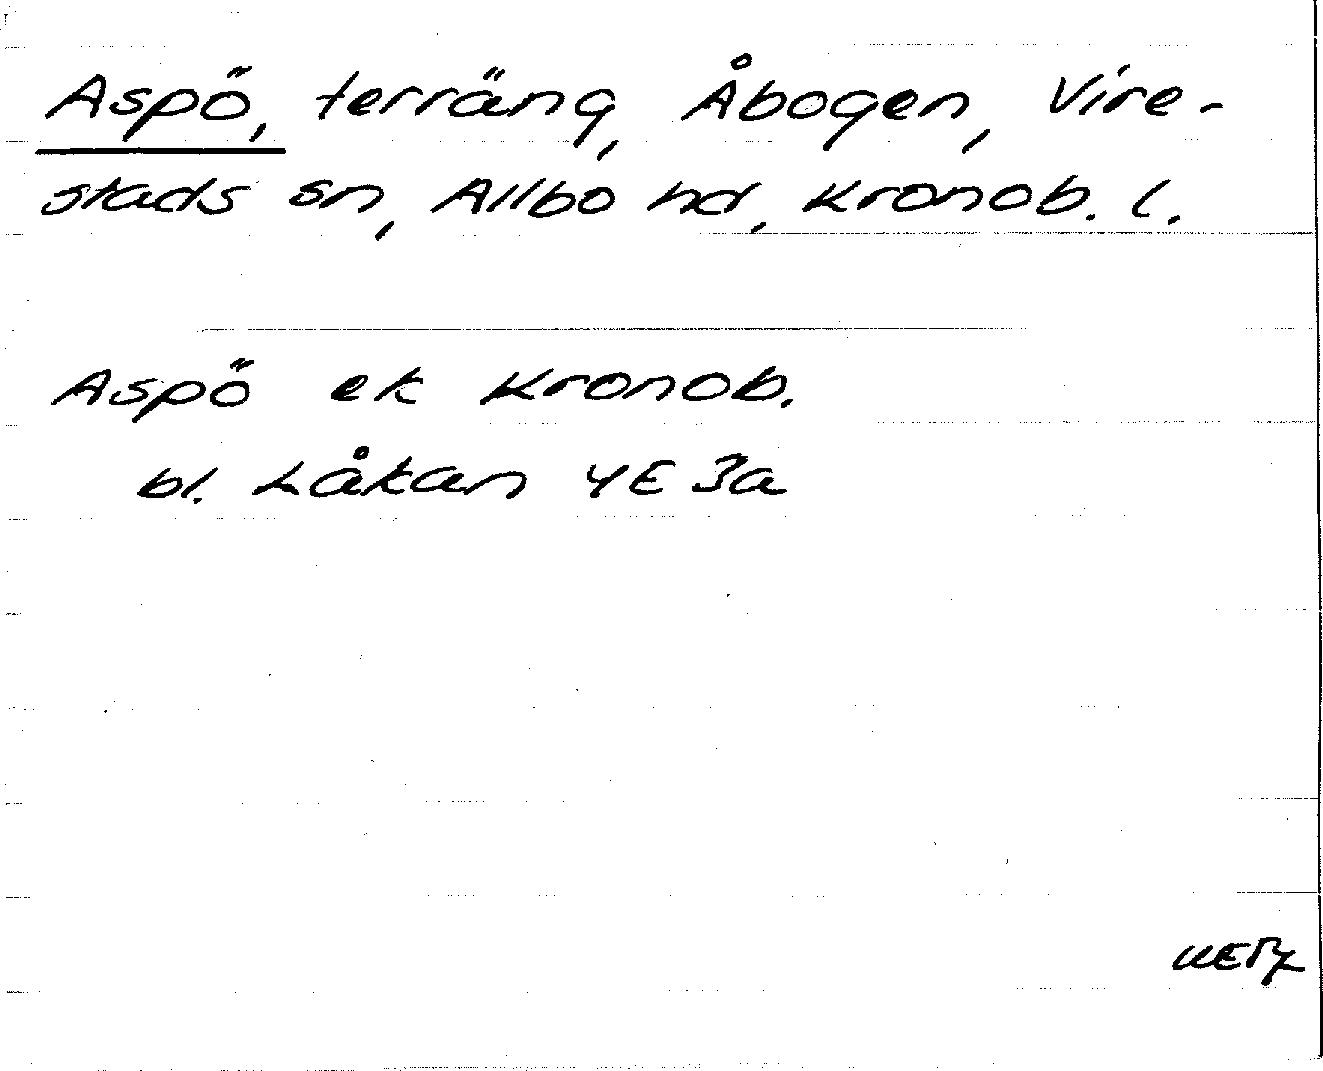 Aspö, terräng, Åbogen, Vire-
stads sn, Allbo hd, Kronob. l.
Aspö ek Kronob.
bl. Låkan 4E 3a